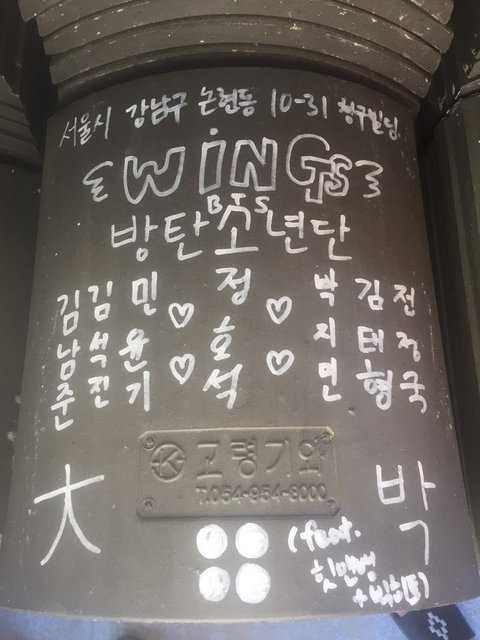 서울시 강남구 논현동 10-31 청구빌딩
WINGS
BTS
방탄소년단
김남준 김석진 민윤기 ♡♡ 정호석 ♡♡ 박지민 김태형 전정국
고령기와
T.054-954-8000
大박
(feat.
힛맨뱅
+빅히트)